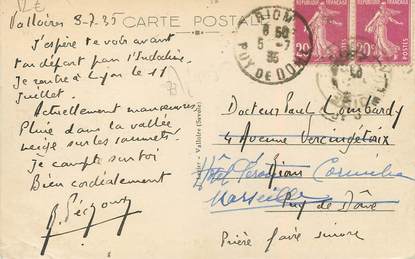 Valloires 8-7-35
CARTE POSTALE
J'espère te voir avant
ton départ pour l'Indochine
Je rentre à Lyon le 11
Juillet.
Actuellement manœuvres
Pluie dans la vallée
neige sur les sommets
Je compte sur toi
Bien cordialement
RIOM
5-7
35
PUY DE DOME
20
20
Docteur Paul Lombardy
4 Avenue Vercingetorix
Riom
Hôtel
Marseille
Puy de Dôme
Prière faire suivre
Valloire (Savoie)